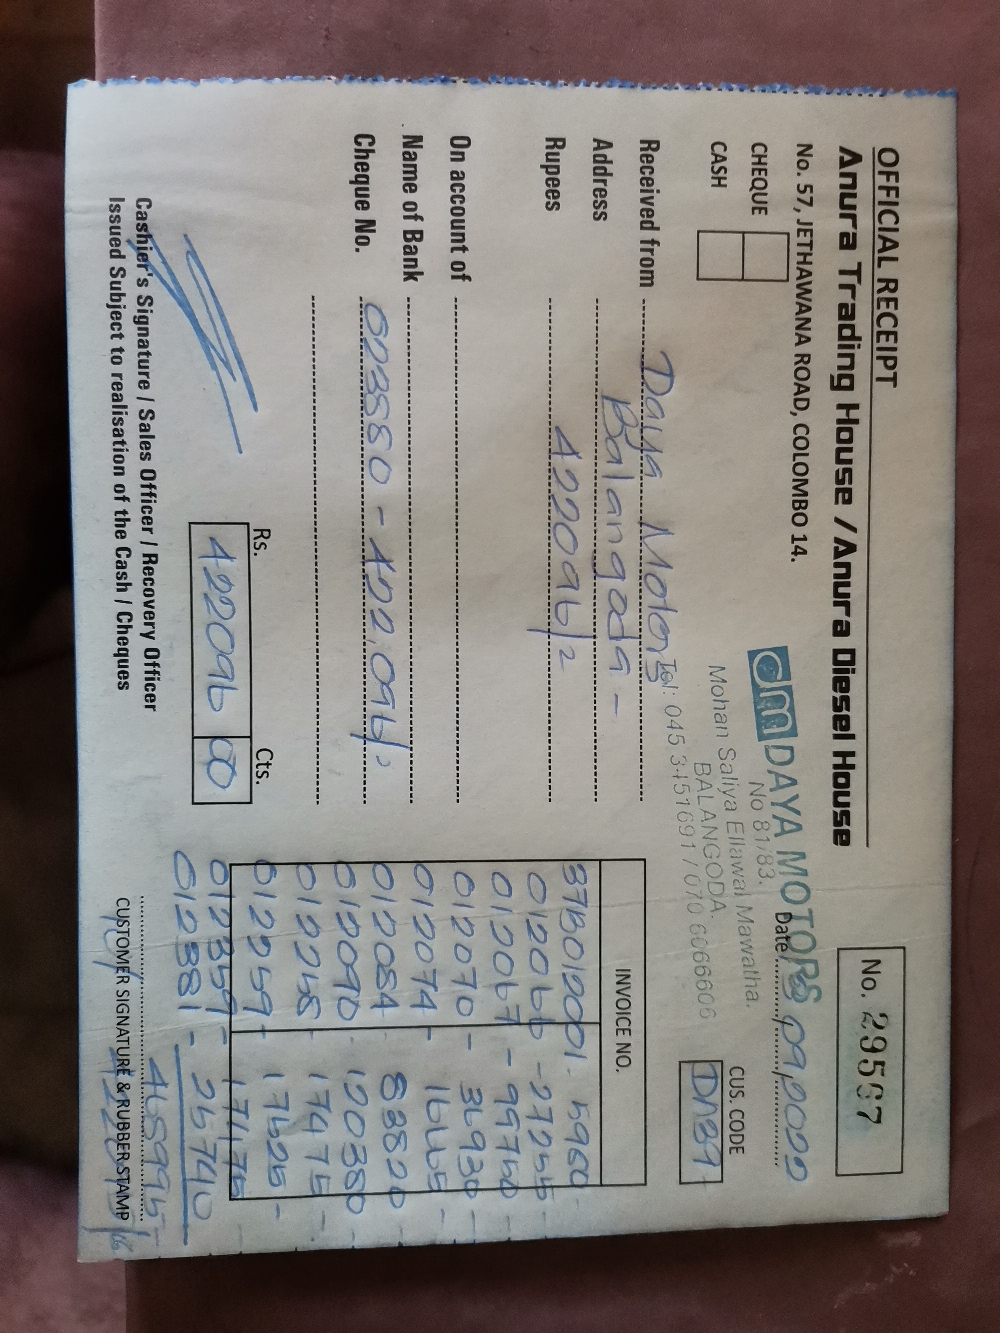 OFFICIAL RECEIPT
No. 29567
Anura Trading House / Anura Diesel House
No. 57, JETHAWANA ROAD, COLOMBO 14.
dm DAYA MOTORS
No 81/83,
Mohan Saliya Ellawal Mawatha.
BALANGODA.
Tel: 045 3451691 / 070 6066606
Date 09.2022
CHEQUE
CASH
CUS. CODE
DM39
Received from Daya Motors
Address Balangoda -
Rupees 422096/2
On account of
Name of Bank
Cheque No. 023880 - 422,096/2
INVOICE NO.
37B012001 - 5960 -
012066 - 27255 -
012067 - 99750 -
012070 - 36930 -
012074 - 16665 -
012084 - 83820 -
012090 - 120380 -
012258 - 17475 -
012259 - 17625 -
012359 - 17475
012381 - 25740
468995
Rs. Cts.
422096 00
Cashier's Signature / Sales Officer / Recovery Officer
Issued Subject to realisation of the Cash / Cheques
CUSTOMER SIGNATURE & RUBBER STAMP